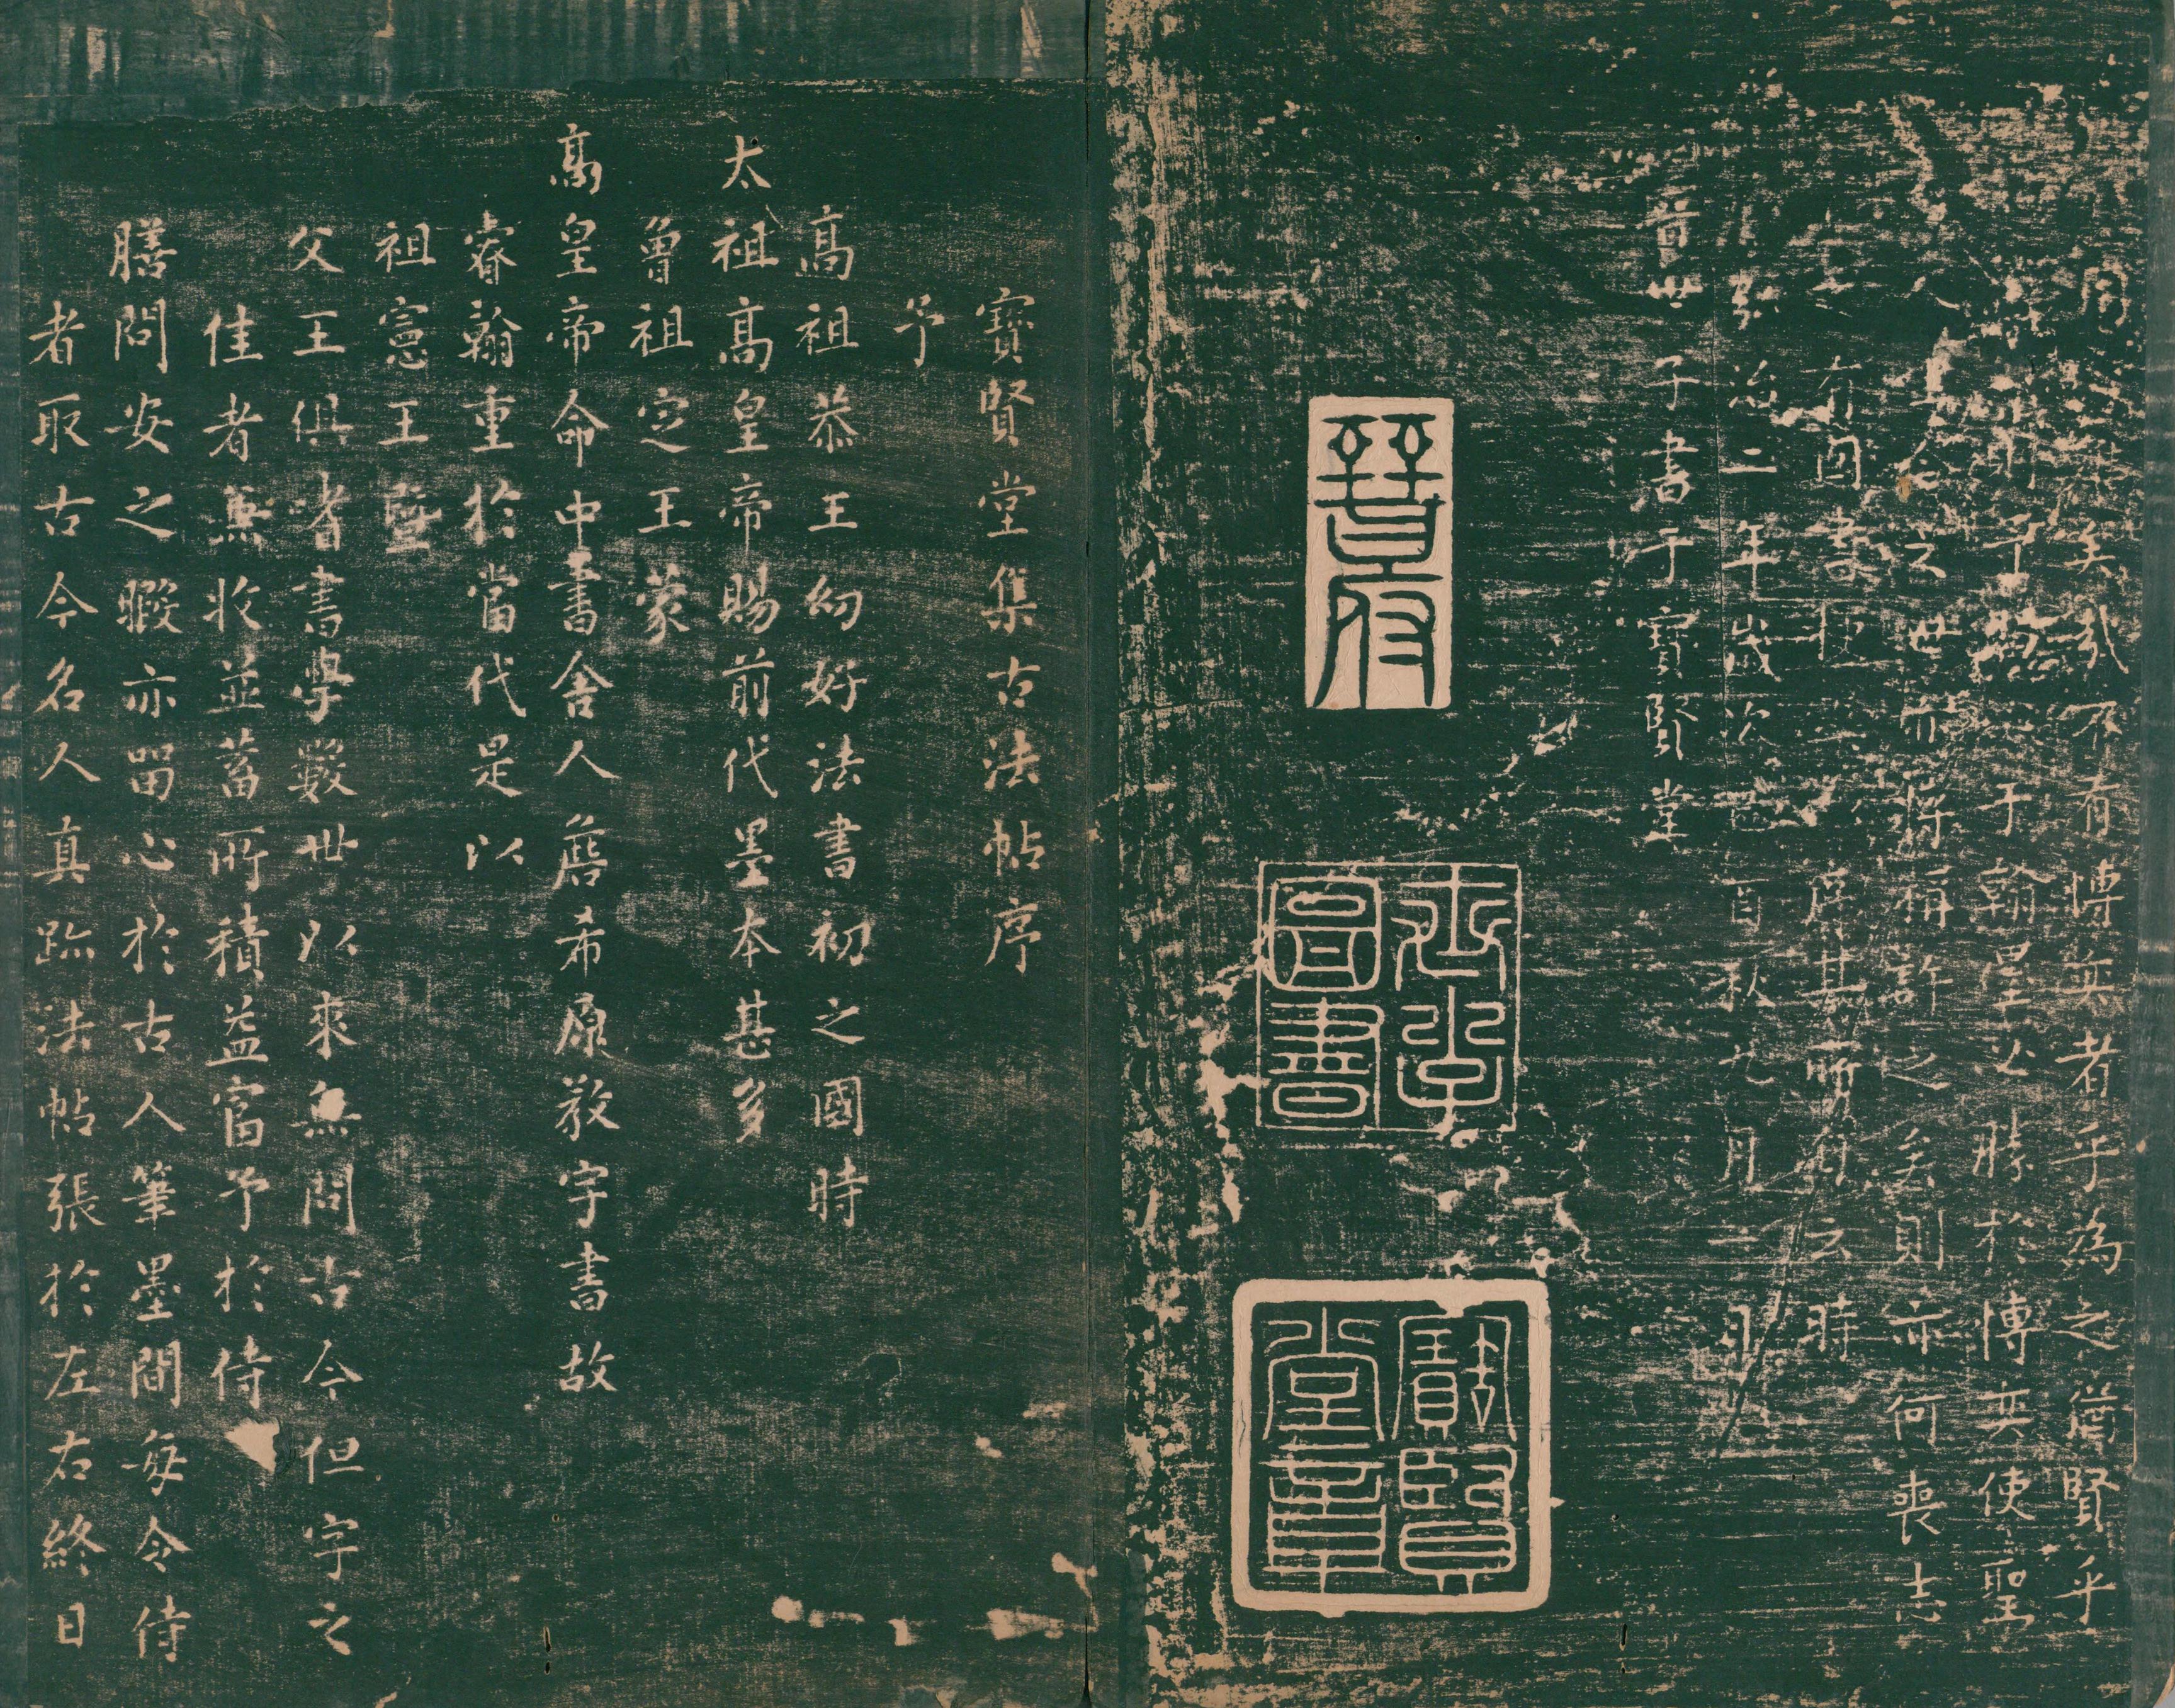 用心矣哉不有博奕者乎為之猶賢乎
於翰墨必勝於博奕使聖
人
復生今之世亦將稱許之矣則亦何喪志
之有因書
序其所自云時
弘治二年歲次己酉秋九月一日
晉世子書于寶賢堂
晉府
寶賢堂章
圖書
寶賢堂集古法帖序
予
高祖恭王幼好法書初之國時
太祖高皇帝賜前代墨本甚多
曾祖定王蒙
高皇帝命中書舍人詹希原教字書故
睿翰重於當代是以
祖憲王曁
父王俱耆書學數世以來無問古今但字之
佳者無收並蓄所積益富予於侍
膳問安之暇亦留心於古人筆墨間每令侍
者取古今名人真跡法帖張於左右終日